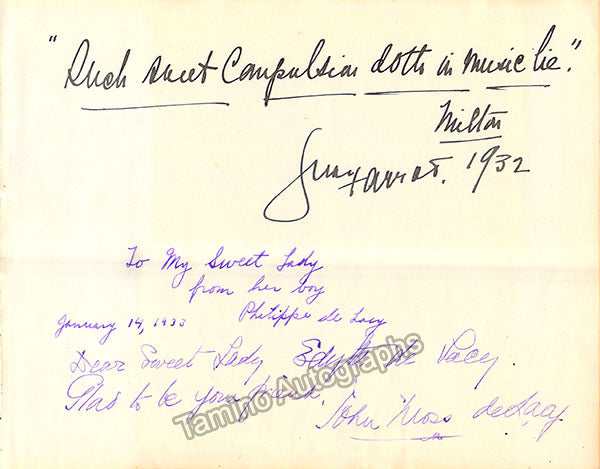 "Such sweet Compulsion doth in Music lie."
Milton
1932
To My Sweet Lady
from her boy
Philippe de Lacy
January 14, 1933
Dear Sweet Lady Edythe de Lacy.
Glad to be your friend.
John Moss de Lacy
Tamino Autographs